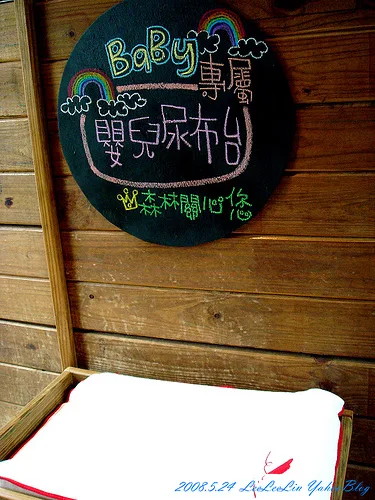 BaBy 專屬
嬰兒尿布台
森林關心您
2008.5.24 LeeLeeLin Yahoo Blog